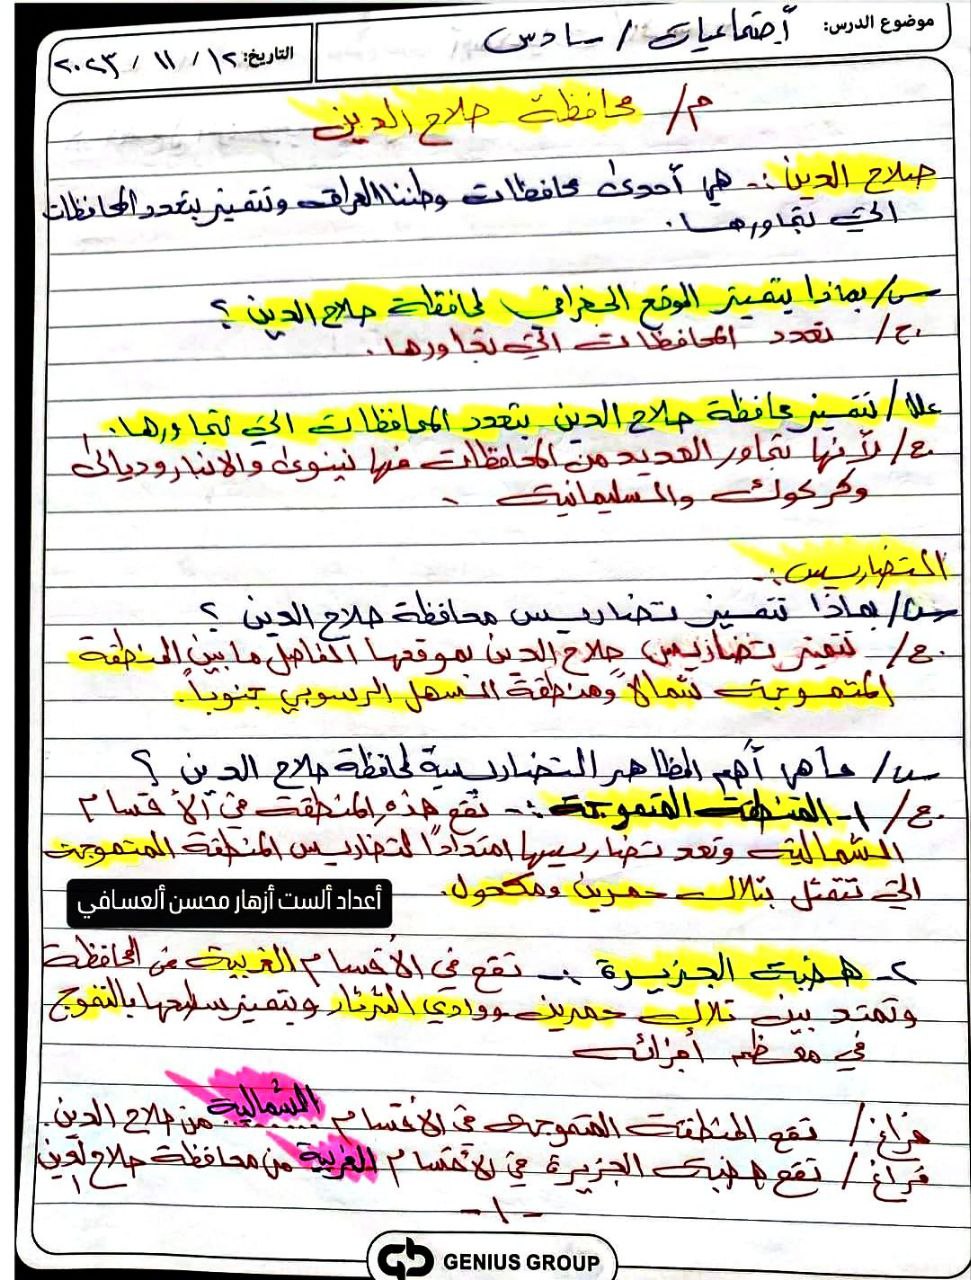 موضوع الدرس: أجتماعيات / سادس
التاريخ: ١٢ / ١١ / ٢٠٢٣
م/ محافظة صلاح الدين
صلاح الدين :- هي أحدى محافظات وطننا العراق وتتميز بتعدد المحافظات
التي تجاورها.
س/ بماذا يتميز الموقع الجغرافي لمحافظة صلاح الدين ؟
ج/ تعدد المحافظات التي تجاورها.
علل/ تتميز محافظة صلاح الدين بتعدد المحافظات التي تجاورها.
ج/ لأنها تجاور العديد من المحافظات منها نينوى والانبار وديالى
وكركوك والسليمانية .
التضاريس :-
س/ بماذا تتميز تضاريس محافظة صلاح الدين ؟
ج/ تتميز تضاريس صلاح الدين بموقعها الفاصل ما بين المنطقة
المتموجة شمالاً ومنطقة السهل الرسوبي جنوباً.
س/ ما هي أهم المظاهر التضاريسية لمحافظة صلاح الدين ؟
ج/ ١- المنطقة المتموجة :- تقع هذه المنطقة في الأقسام
الشمالية وتعد تضاريسها امتداداً لتضاريس المنطقة المتموجة
التي تتمثل بتلال حمرين ومكحول.
أعداد ألست أزهار محسن ألعسافي
٢- هضبة الجزيرة :- تقع في الأقسام الغربية من المحافظة
وتمتد بين تلال حمرين ووادي الثرثار ويتميز سطحها بالتموج
في معظم أجزائه
فراغ/ تقع المنطقة المتموجة في الاقسام الشمالية من صلاح الدين.
فراغ/ تقع هضبة الجزيرة في الاقسام الغربية من محافظة صلاح الدين
-١-
GENIUS GROUP